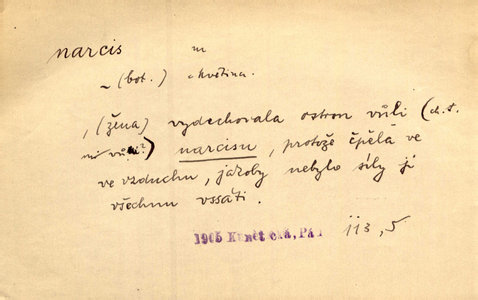 narcis m
~ (bot.) květina.
, (žena) vydechovala ostrou vůli (d. t.
narcisu, protože čpěla ve
ve vzduchu, jakoby nebylo síly ji
všechnu vssáti.
1905 Kunětická, Pá 113, 5